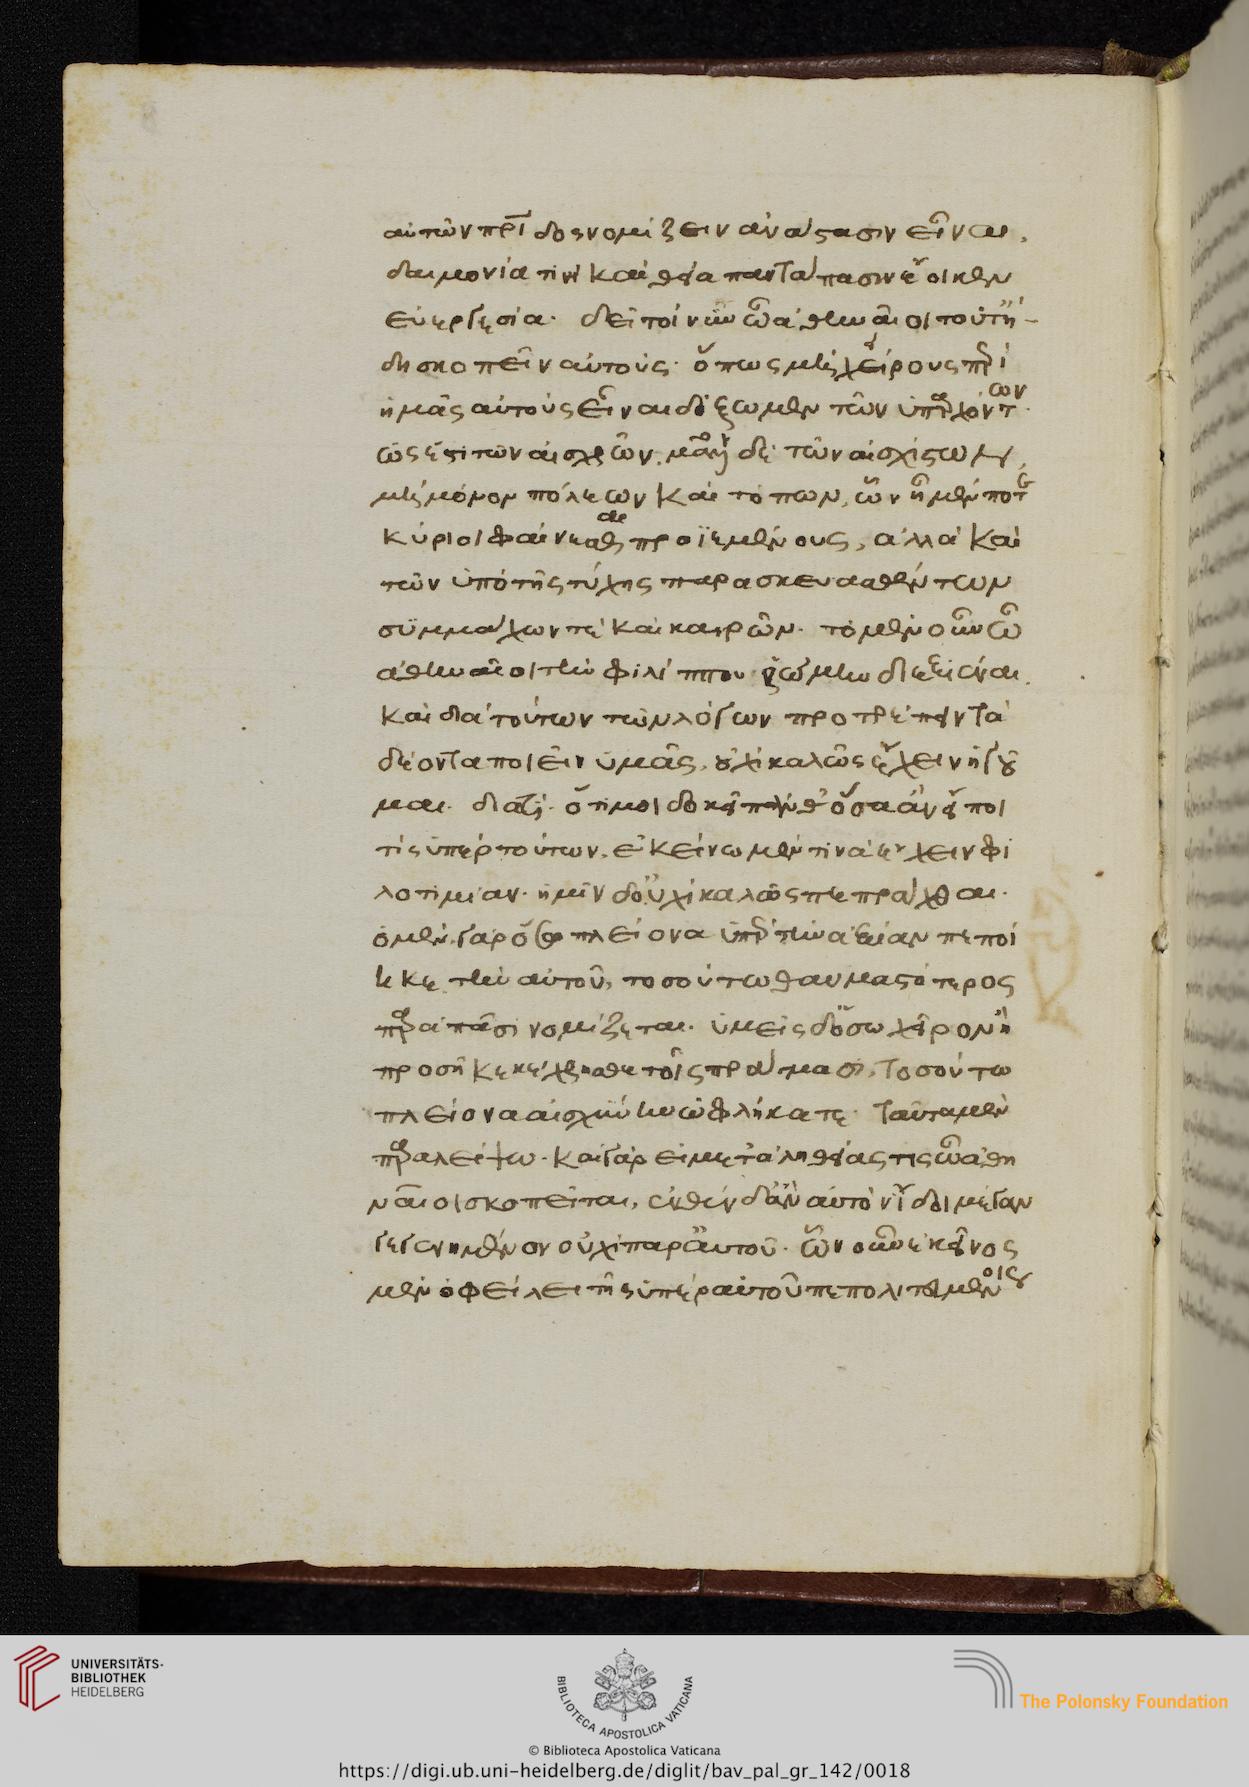 αὐτῶν πρίδος νομίζειν ἀνάστασιν εἶναι,
δαιμονία τινὶ καὶ θεία παντάπασιν ἔοικεν
εὐεργεσία. δεῖ τοίνυν ὦ ἀθηναῖοι τοῦτ' ἤ-
δη σκοπεῖν αὐτοὺς. ὅπως μὴ χείρους περὶ
ἡμᾶς αὐτοὺς εἶναι δόξωμεν τῶν ὑπαρχόντων.
ὡς ἔστι τῶν αἰσχρῶν, μᾶλλον δὲ τῶν αἰσχίστων,
μὴ μόνον πόλεων καὶ τόπων, ὧν ἦμέν ποτε
κύριοι φαίνεσθαι προϊεμένους, ἀλλὰ καὶ
τῶν ὑπὸ τῆς τύχης παρασκευασθέντων
συμμάχων τὲ καὶ καιρῶν. τὸ μὲν οὖν ὦ
ἀθηναῖοι τὴν φιλίππου ῥώμην διεξιέναι
καὶ διὰ τούτων τῶν λόγων προτρέπειν τὰ
δέοντα ποιεῖν ὑμᾶς, οὐχὶ καλῶς ἔχειν ἡγοῦ
μαι. διατί; ὅτι μοι δοκεῖ πάνθ' ὅσα ἂν εἴποι
τίς ὑπὲρ τούτων, ἐκείνω μὲν τινὰ ἔχειν φι
λοτιμίαν. ἡμῖν δ' οὐχὶ καλῶς πεπράχθαι.
ὁ μὲν γὰρ ὅσω πλείονα ὑπὲρ τὴν ἀξίαν πεποί
ηκε τὴν αὐτοῦ, τοσούτω θαυμαστότερος
παρὰ πᾶσι νομίζεται. ὑμεῖς δ' ὅσω χεῖρον ἢ
προσῆκε κέχρησθε τοῖς πράγμασι, τοσούτω
πλείονα αἰσχύνην ὠφλήκατε. ταῦτα μὲν
παραλείψω. καὶ γὰρ εἰ μετ' ἀληθείας τις ὦ ἀθη
ναῖοι σκοπεῖται, ἐνθένδ' ἂν αὐτὸν ἴδοι μέγαν
γεγενημένον οὐχὶ παρ' αὑτοῦ. ὧν οὖν ἐκεῖνος
μὲν ὀφείλει τοῖς ὑπὲρ αὐτοῦ πεπολιτευμένοις
UNIVERSITÄTS-
BIBLIOTHEK
HEIDELBERG
BIBLIOTECA APOSTOLICA VATICANA
The Polonsky Foundation
© Biblioteca Apostolica Vaticana
https://digi.ub.uni-heidelberg.de/diglit/bav_pal_gr_142/0018